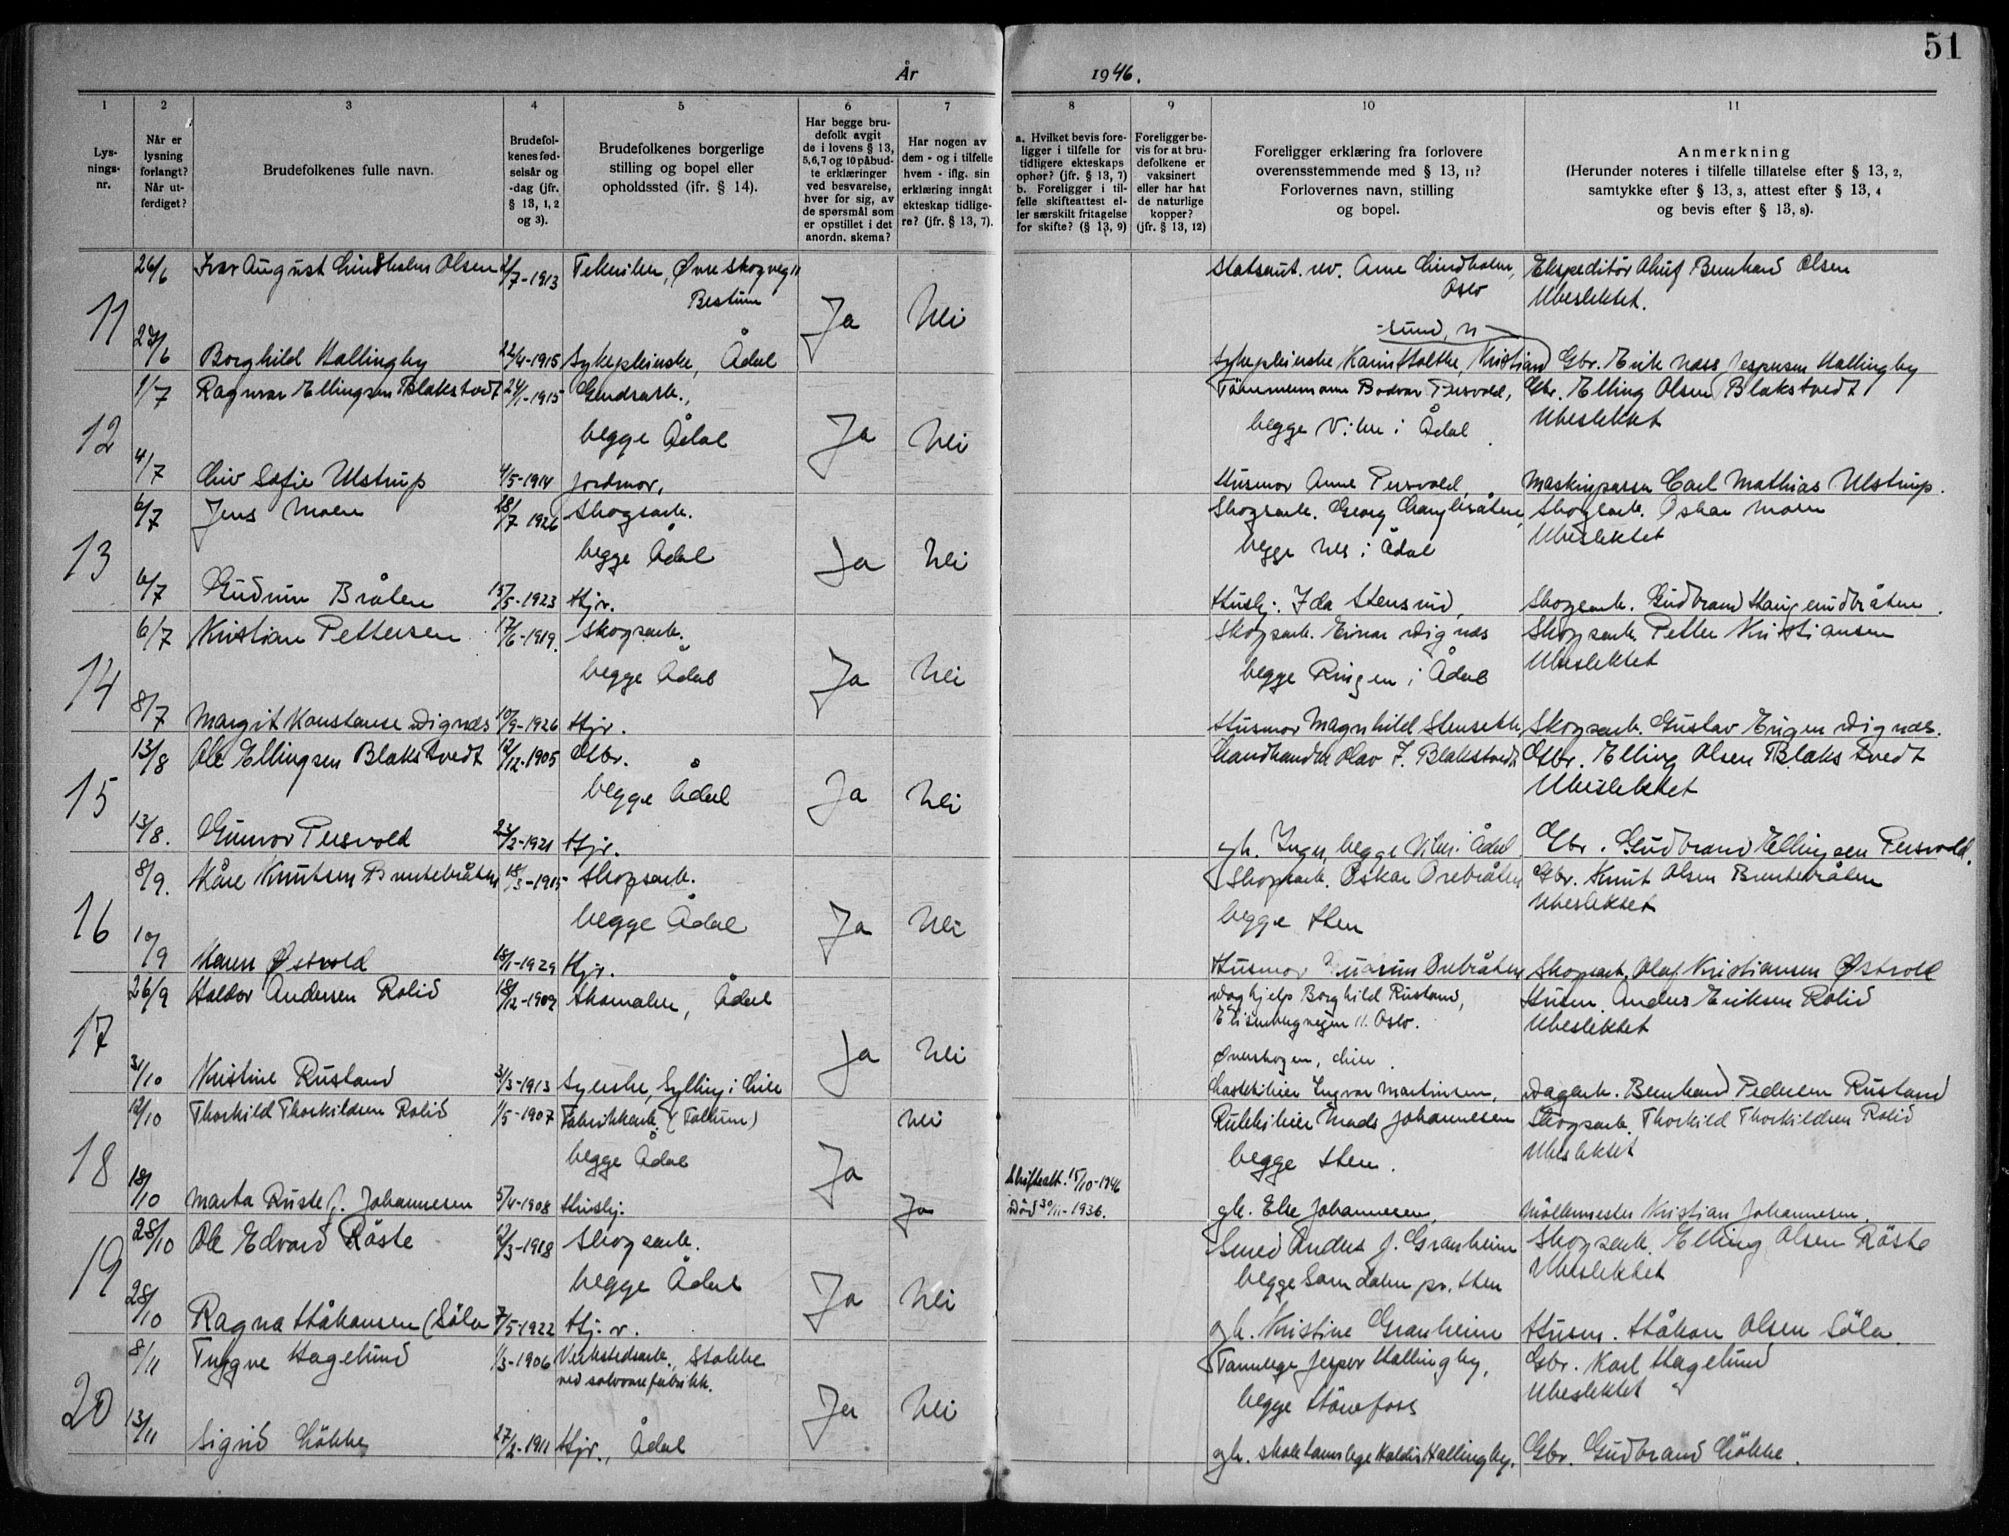 51
År 1946.
1
Lys-
nings-
nr.
2
Når er
lysning
forlangt?
Når ut-
ferdiget?
3
Brudefolkenes fulle navn.
4
Brudefol-
kenes fød-
selsår og
-dag (jfr.
§ 13, 1, 2
og 3).
5
Brudefolkenes borgerlige
stilling og bopel eller
opholdssted (ifr. § 14).
6
Har begge bru-
defolk avgit
de i lovens § 13,
5, 6, 7 og 10 påbud-
te erklæringer
ved besvarelse,
hver for sig, av
de spørsmål som
er opstillet i det
anordn. skema?
7
Har nogen av
dem - og i tilfelle
hvem - iflg. sin
erklæring inngåt
ekteskap tidlige-
re? (jfr. § 13, 7).
8
a. Hvilket bevis fore-
ligger i tilfelle for
tidligere ekteskaps
ophør? (jfr. § 13, 7)
b. Foreligger i til-
felle skifteattest el-
ler særskilt fritagelse
for skifte? (§ 13, 9)
9
Foreligger be-
vis for at bru-
defolkene er
vaksinert
eller har hat
de naturlige
kopper?
(jfr. § 13, 12)
10
Foreligger erklæring fra forlovere
overensstemmende med § 13, 11?
Forlovernes navn, stilling
og bopel.
11
Anmerkning
(Herunder noteres i tilfelle tillatelse efter § 13, 2,
samtykke efter § 13, 3, attest efter § 13, 4
og bevis efter § 13, 8).
26/6 Ivar August Lindholm Olsen 2/7-1913 Tekniker, Øvre Skogveg 11 Statsaut. rev. Arne Lindholm, Ekspeditør Bernhard Olsen
Bestum Oslo Ubeslektet.
11 Ja Nei
-sund, N
Borghild Hallingby 22/4-1915 Sykepleierske, Ådal Sykepleierske Karin Holthe, Kristian Gbr. Erik Næss Jespersen Hallingby
1/7 Ragnvar Ellingsen Blakstvedt 24/1-1915 Gårdsarb., Tømmermann Bodvar Persvold, Gbr. Elling Olsen Blakstvedt
12 begge Ådal Ja Nei begge Viker i Ådal Ubeslektet
4/7 Liv Sofie Ulstrup 4/5-1914 Jordmor, Husmor Anne Persvold, Maskinpasser Carl Mathias Ulstrup.
6/7 Jens Moen 28/7 1926 Skogsarb. Skogsarb. Georg Skogsarb. Oskar Moen
13 begge Ådal Ja Nei begge Nes i Ådal Ubeslektet
6/7 Gudrun Bråten 15/5-1923 Hjv. Hushj. Ida Stensrud, Skogsarb. Gudbrand Haugerudbråten.
6/7 Kristian Pettersen 17/6-1919. Skogsarb. Skogsarb. Einar Dignæs Skogsarb. Petter Kristiansen
14 begge Ådal Ja Nei begge Ringen i Ådal Ubeslektet
8/7 Margit Konstanse Dignæs 10/9-1926 Hjv. Husmor Magnhild Stenseth, Skogsarb. Gustav Eugen Dignæs.
13/8 Ole Ellingsen Blakstvedt 12/12-1905 Gbr. Landhandler Olav J. Blakstvedt Gbr. Elling Olsen Blakstvedt
15 begge Ådal Ja Nei Ubeslektet
13/8. Gunvor Persvold 23/2-1921 Hjv. gh. Inger, begge Viker i Ådal Gbr. Gudbrand Ellingsen Persvold.
8/9. Kåre Knutsen Buntebråten 18/3-1915 Skogsarb. Skogsarb. Oskar Orebråten Gbr. Knut Olsen Buntebråten
16 begge Ådal Ja Nei begge Hen Ubeslektet
10/9 Maren Østvold 18/1-1929 Hjv. Husmor Gudrun Orebråten Skogsarb. Olaf Kristiansen Østvold
26/9 Haldor Andersen Rolid 18/12-1909 Skomaker, Ådal Daghjelp Borghild Rustand, Husm. Anders Eriksen Rolid
Elisenbergvegen 11. Oslo. Ubeslektet
17 Ja Nei
Øverskogen, Lier.
3/10 Kristine Rustand 3/3-1913 Syerske, Sylling i Lier Lastebileier Ingvar Martinsen, Dagarb. Bernhard Pedersen Rustand
12/10 Thorkild Thorkildsen Rolid 1/5-1907 Fabrikkarb. Nei Rutebileier Mads Johannesen Skogsarb. Thorkild Thorkildsen Rolid
18 begge Ådal Ja begge Hen. Ubeslektet
18/10 Marta Ruste f. Johannesen 5/4-1908 Hushj. Ja Skifteatt. 15/10-1946 gh. Else Johannesen, Møllemester Kristian Johannesen.
Død 30/11-1936.
28/10 Ole Edvard Røste 12/3-1918 Skogsarb. Smed Anders J. Granheim Skogsarb. Elling Olsen Røste
19 begge Ådal Ja Nei begge Somdalen pr. Hen Ubeslektet
28/10 Ragna Håkansen (Søla 7/5-1922 Hj.v. gh. Kristine Granheim Husm. Håkon Olsen Søla
8/11 Trygve Hagelund 1/3-1906 Verkstedsarb., Stokke Tannlege Jesper Hallingby, Gbr. Karl Hagelund
ved sølvvarefabrikk. Ubeslektet
20 Ja Nei begge Hønefoss
13/11 Sigrid Løkke 27/2-1911 Hjv., Ådal gh. skoletannlege Haldis Hallingby. Gbr. Gudbrand Løkke.